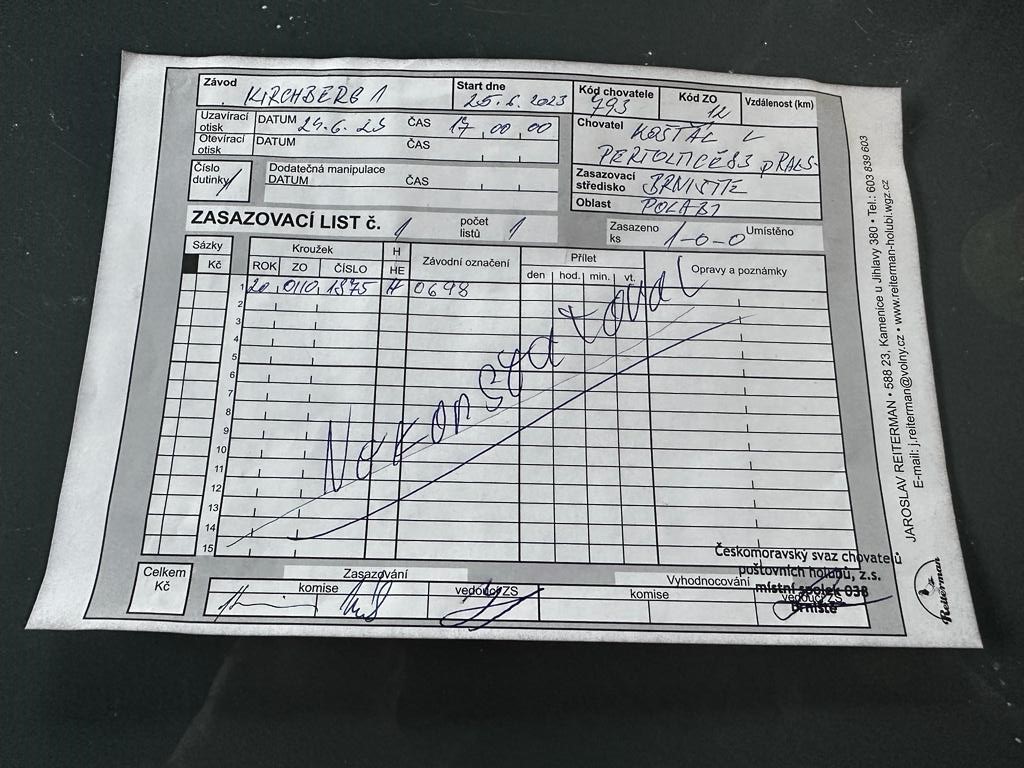 Závod KIRCHBERG 1
Start dne 25.6.2023
Kód chovatele 793
Kód ZO 12
Vzdálenost (km)
Uzavírací otisk DATUM 24.6.23 ČAS 17 00 00
Otevírací otisk DATUM ČAS
Chovatel KOŠŤÁL L
PERTOLTICE 83 pRALS-
Číslo dutinky /
Dodatečná manipulace
DATUM ČAS
Zasazovací středisko BRNIŠTĚ
Oblast POLABÍ
ZASAZOVACÍ LIST č. 1 počet listů 1
Zasazeno ks 1-0-0 Umístěno
Sázky Kroužek H Závodní označení Přílet Opravy a poznámky
Kč ROK ZO ČÍSLO HE den hod. min. vt.
1 20 0110 1875 H 0698
2
3
4
5
6
7
8
9
10
11
12
13
14
15
Celkem Kč
Zasazování
Vyhodnocování
komise vedoucí ZS komise vedoucí ZS
Českomoravský svaz chovatelů
poštovních holubů, z.s.
místní spolek 038
Brniště
JAROSLAV REITERMAN • 588 23, Kamenice u Jihlavy 380 • Tel.: 603 839 603
E-mail: j.reiterman@volny.cz • www.reiterman-holubi.wgz.cz
Reiterman